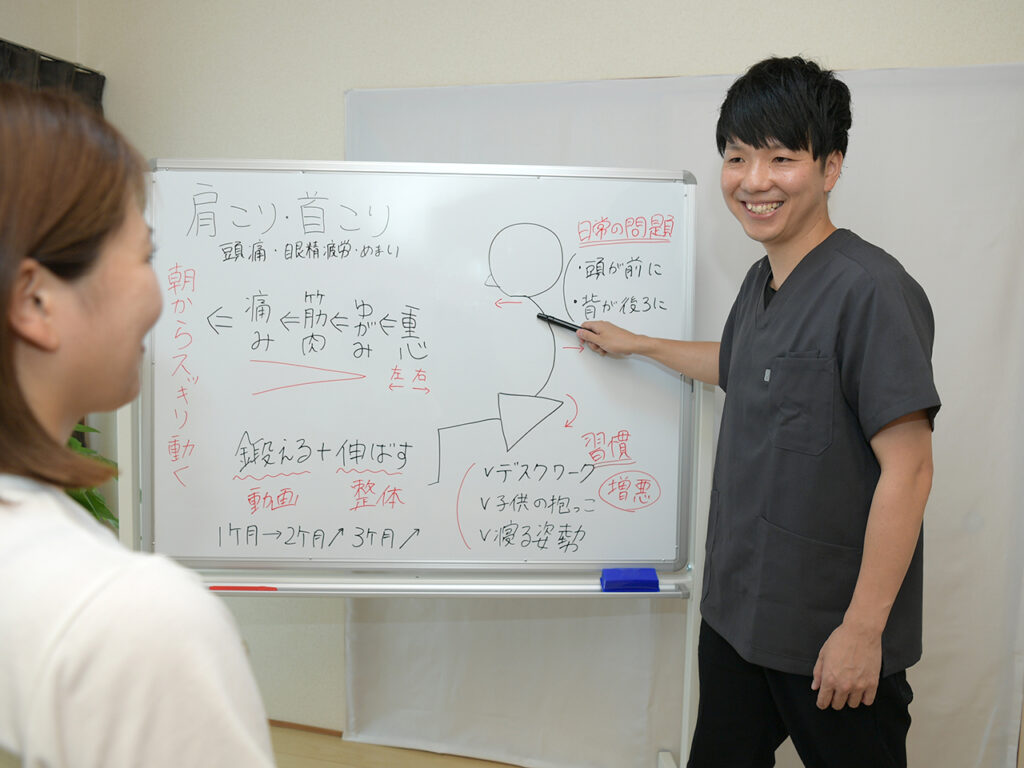 肩こり・首こり
頭痛・眼精疲労・めまい
朝からズキリ動く
⇐痛み⇐筋肉⇐ゆがみ⇐重心
左 右
← →
鍛える+伸ばす
動画 整体
1ケ月→2ケ月↗3ケ月↗
日常の問題
・頭が前に
・背が後ろに
習慣
vデスクワーク
v子供の抱っこ
v寝る姿勢
増悪